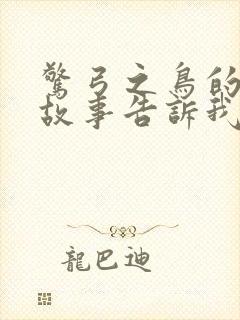 驚弓之鳥的
故事告訴我
龍巴迪